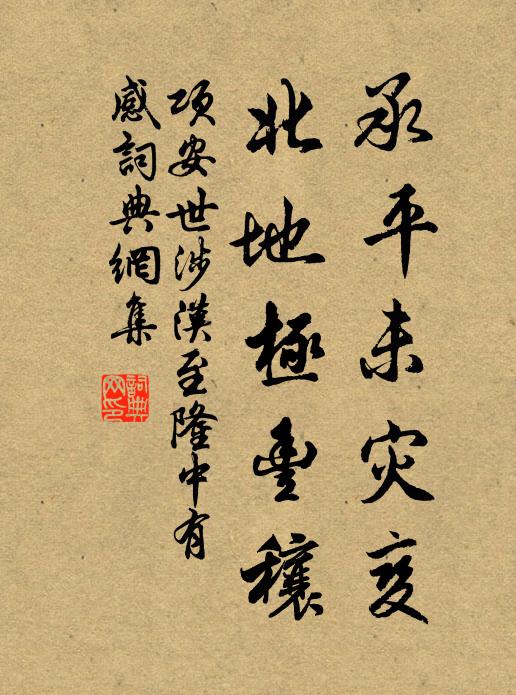 承平未灾变
北地極豊穰
项安世涉漢至隆中有
感詞典網集
詞典
网印